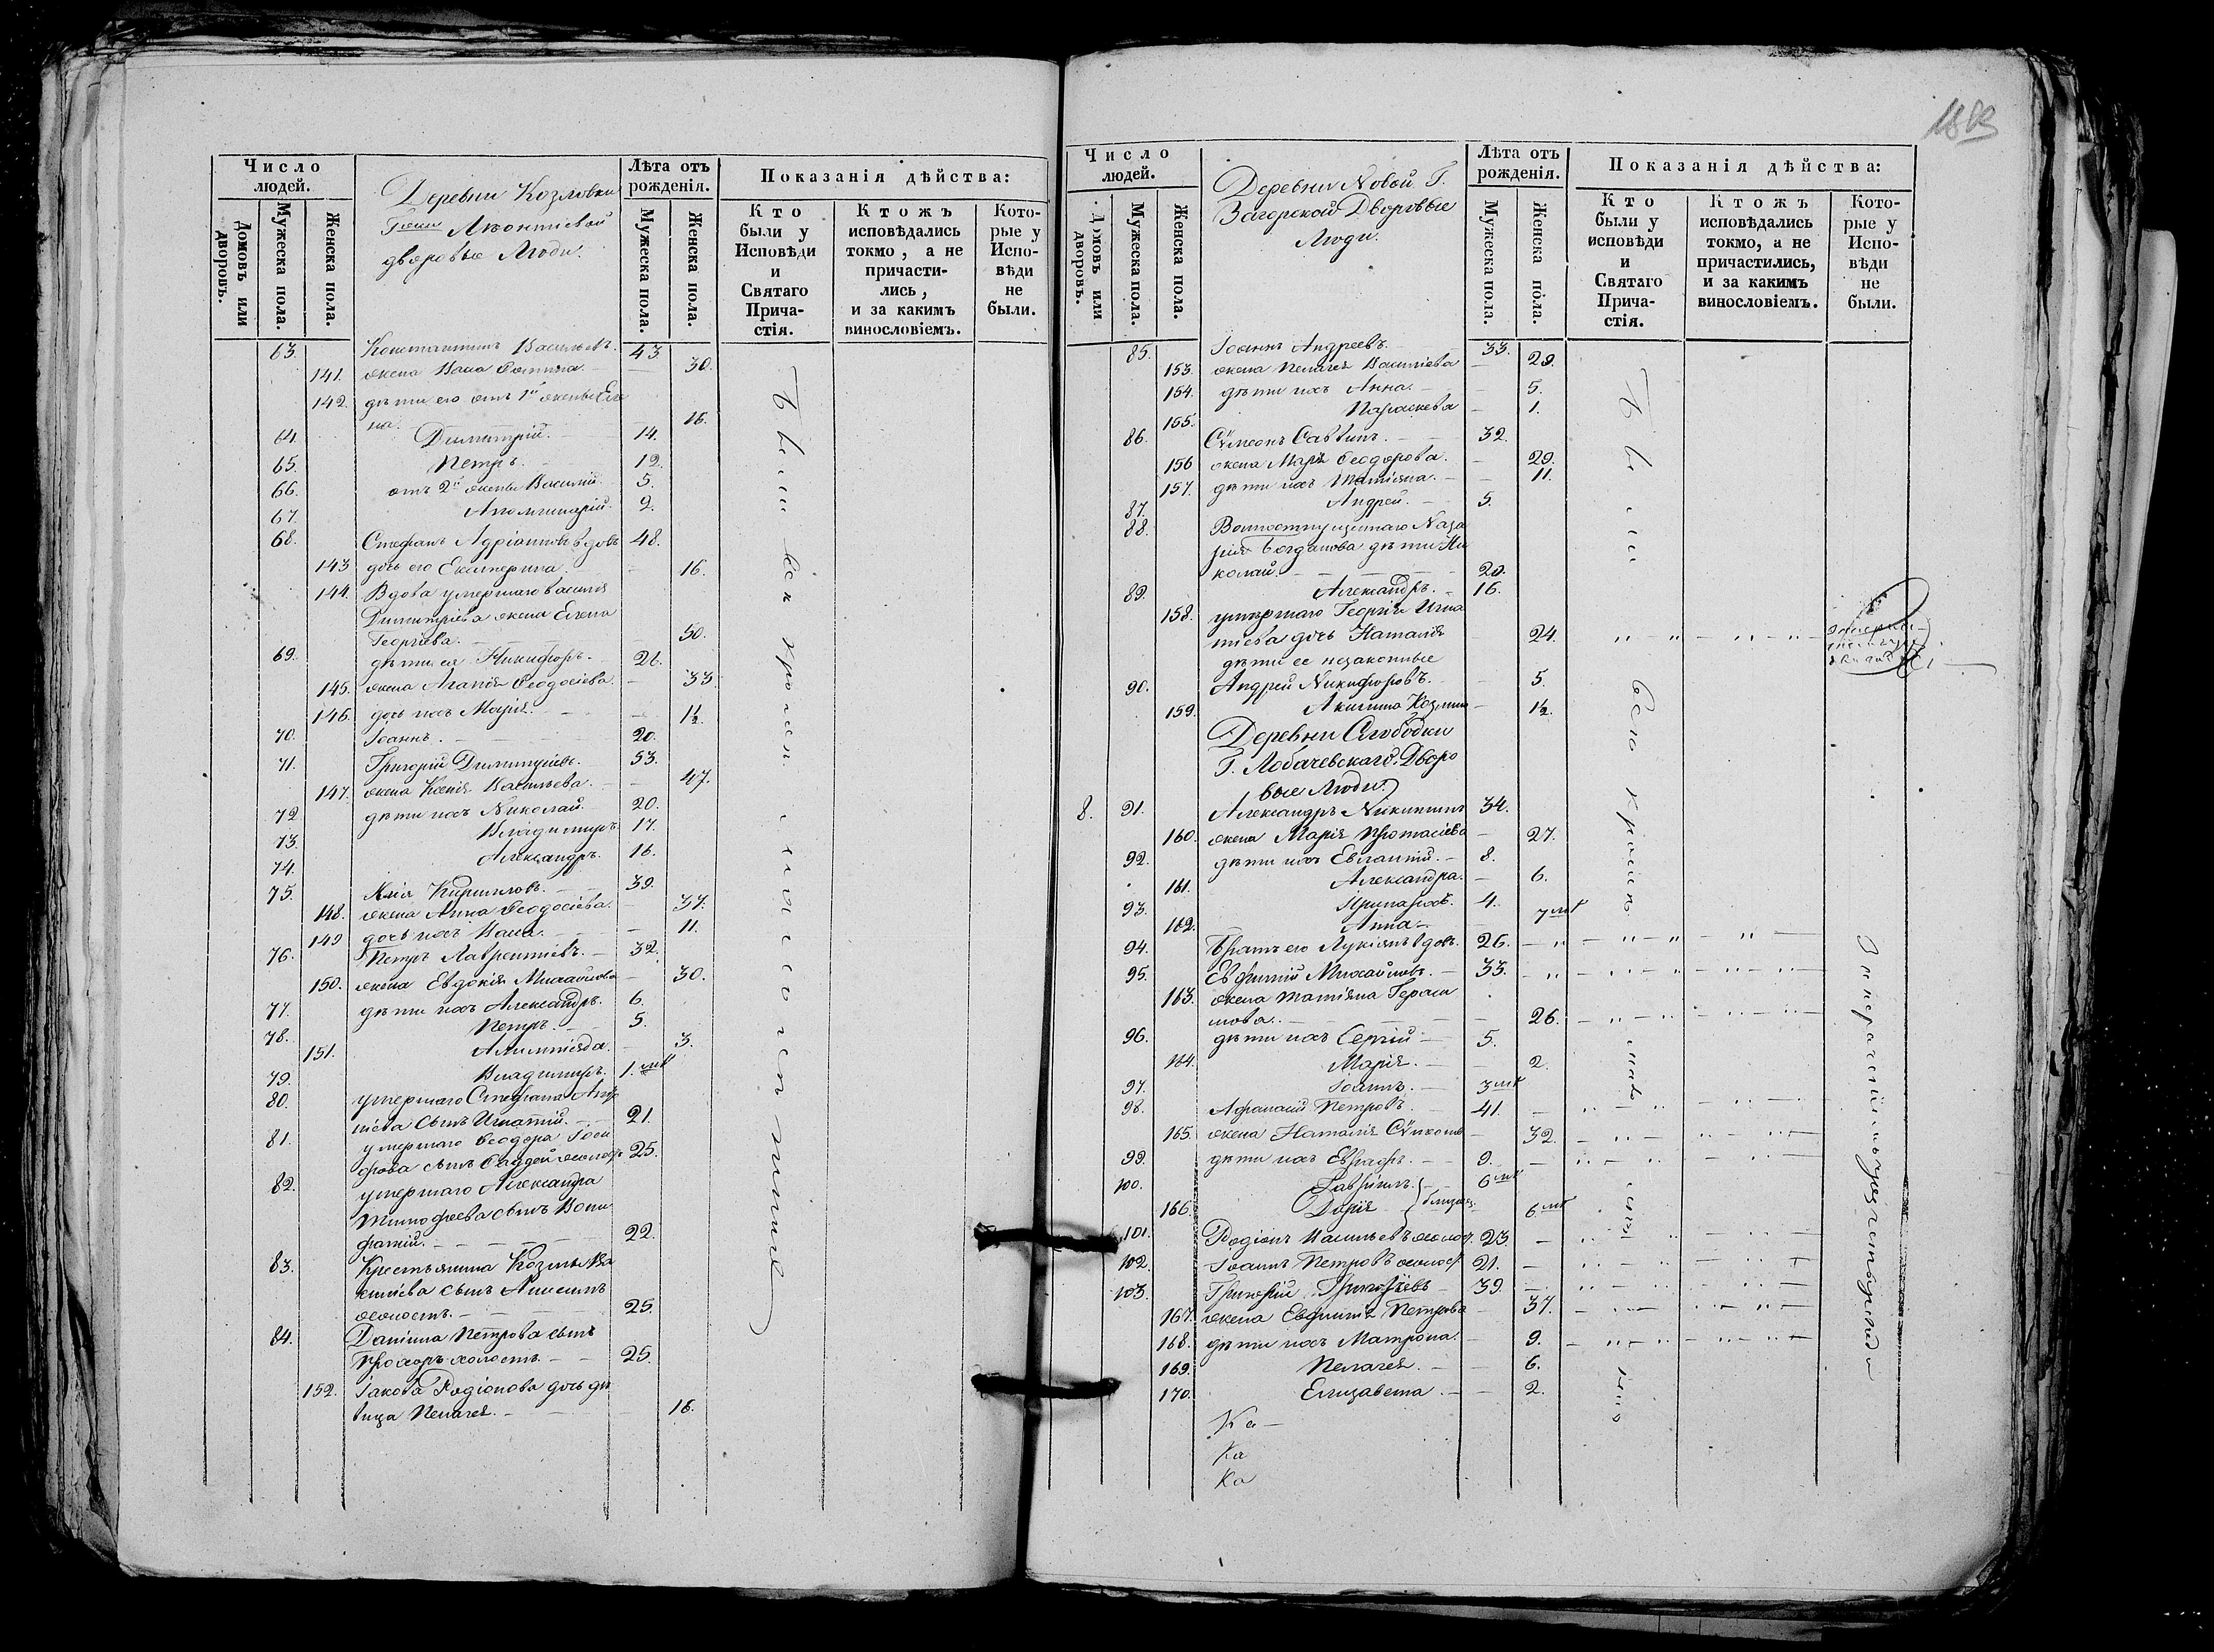 1803
Число людей.
Домовъ или дворовъ.
Мужеска пола.
Женска пола.
Деревни Козловки
Г-жи Леонтіевой
дворовые Люди.
Лѣта отъ рожденія.
Мужеска пола.
Женска пола.
Показанія дѣйства:
Кто были у Исповѣди и Святаго Причастія.
Ктожъ исповѣдались токмо, а не причастились, и за какимъ винословіемъ.
Которые у Исповѣди не были.
63. Константинъ Васильевъ. 43
141. жена Васса Фомина. — 30.
142. дѣти его отъ 1й жены Еле
на. 16.
64. Димитрій. 14.
65. Петръ. 12.
66. отъ 2й жены Василій. 5.
67. Аполлинарій. 2.
68. Стефанъ Адріановъ вдовъ 48.
143 дочь его Екатерина. — 16.
144. Вдова умершаго Василія
Димитріева жена Елена
Георгіева. — 50.
69. дѣти ея Никифоръ. 26.
145. жена Агапія Ѳеодосіева. — 33
146. дочь ихъ Марія. — 1½.
70. Іоаннъ. 20.
71. Григорій Димитріевъ. 53.
147. жена Ксенія Васильева. — 47.
72 дѣти ихъ Николай. 20.
73. Владимиръ. 17.
74. Александръ. 16.
75. Илія Кирилловъ. 39.
148. жена Анна Ѳеодосіева. — 37.
149 дочь ихъ Васса. — 11.
76. Петръ Лаврентіевъ. 32.
150. жена Евдокія Михайлова — 30.
77. дѣти ихъ Александръ. 6.
78. Петръ. 5.
151. Алимпіада. — 3.
79. Владимиръ. 1. мѣ
80. умершаго Стефана
сынъ Игнатій. 21.
81. умершаго Ѳеодора Іоси
фова сынъ Фаддей холост 25.
82. умершаго Александра
Тимофеева сынъ Вони
фатій. 22.
83. Крестьянина Козмы
сынъ Анисимъ
холостъ. 25.
84. Даніила Петрова сынъ
Прохоръ холостъ. 25.
152. Іакова Родіонова дочь дѣ
вица Пелагея. — 16.
Число людей.
Домовъ или дворовъ.
Мужеска пола.
Женска пола.
Деревни Новой Г.
Загорской Дворовые
Люди.
Лѣта отъ рожденія.
Мужеска пола.
Женска пола.
Показанія дѣйства:
Кто были у исповѣди и Святаго Причастія.
Ктожъ исповѣдались токмо, а не причастились, и за какимъ винословіемъ.
Которые у Исповѣди не были.
85. Іоаннъ Андреевъ. 33.
153. жена Пелагея Василіева — 29.
154. дѣти ихъ Анна. — 5.
155. Параскева — 1.
86. Сѵмеонъ Саввинъ. 32.
156 жена Марія Ѳеодорова. — 29.
157. дѣти ихъ Татіяна. — 11.
87. Андрей. 5.
88. Вольноотпущеннаго Наза
рія Богданова дѣти Ни
колай. 20.
89. Александръ. 16.
158. умершаго Георгія Игна
тіева дочь Наталія 24.
дѣти ее незаконные
90. Андрей Никифоровъ. 5.
159. Акилина Козмина — 1½.
Деревни Слободки
Г. Лобачевскаго Дворо
вые Люди.
8. 91. Александръ Никитинъ 34.
160. жена Марія Протасіева — 27.
92. дѣти ихъ Евлампій. — 8.
161. Александра. — 6.
93. 4.
162. Анна — 7 мѣ
94. Братъ его Лукіянъ вдовъ. 26.
95. Евфимій Михайловъ. — 33.
163. жена Татіяна Гераси
мова. — 26.
96. дѣти ихъ Сергій — 5.
164. Марія. — 2.
97. Іоаннъ. 3 мѣ
98. Афанасій Петровъ. 41.
165. жена Наталія — 32.
99. дѣти ихъ Евграфъ. 9.
100. Гавріилъ. 6 мѣ
166. Дарія близнец. 6 мѣ
101. Родіонъ Васильевъ холост. 23.
102. Іоаннъ Петровъ холост. 21.
103. Григорій Григорьевъ 39.
167. жена Евфимія Петрова — 37.
168. дѣти ихъ Матрона. — 9.
169. Пелагея. — 6.
170. Елизавета. — 2.
Ка —
Ка
Ка